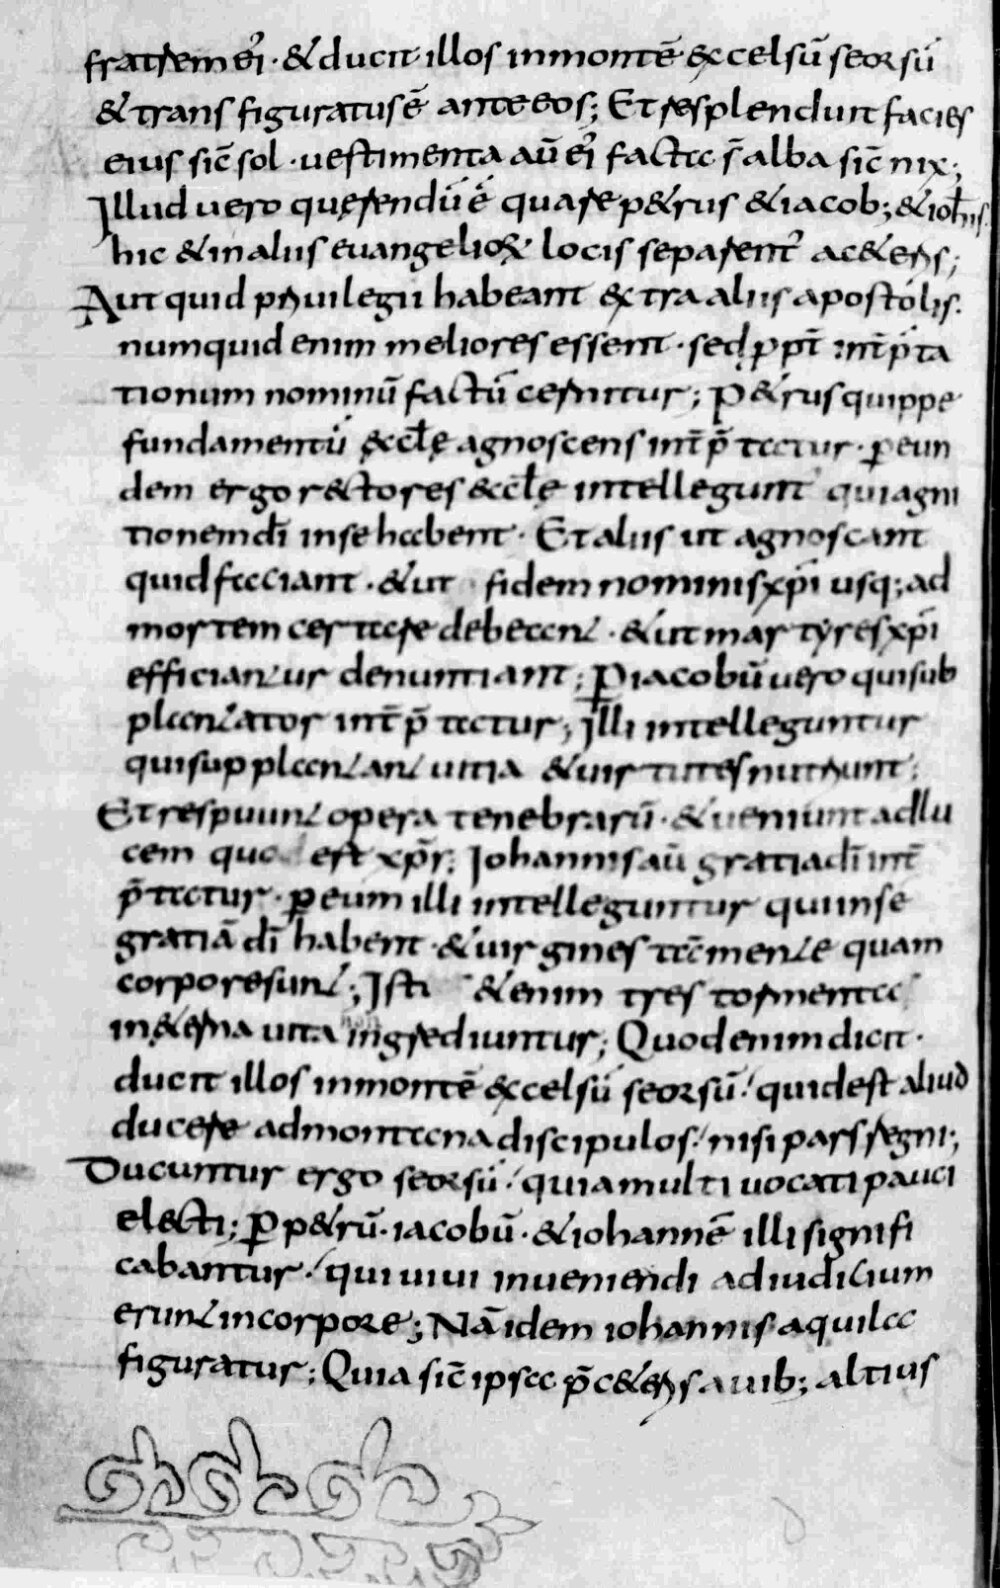 fratrem ei᾽ · & ducit illos in montē excelsū seorsū
& transfiguratus ē ante eos; Et resplenduit facies
eius sic̄ sol · uestimenta aū ei᾽ facta s̄ alba sic̄ nix;
Illud uero querendū ē quare p&rus & iacob; & ioh̄is
hic & in aliis euangelioꝝ locis separent᾽ a c&eris;
Aut quid priuilegii habeant extra aliis apostolis.
numquid enim meliores essent · sed ꝓpt̄ int̄p̄ta
tionum nominū factū cernitur; P&rus quippe
fundamentū ęccl̄ę agnoscens int̄p̄tatur · ꝑ eun
dem ergo rectores eccl̄ę intellegunt᾽ qui agni
tionem dī in se habent · Et aliis ut agnoscant
quid faciant · & ut fidem nominis xp̄i usq; ad
mortem certare debeant · & ut martyres xp̄i
efficiantur denuntiant; Ꝑ iacobū uero qui sub
plantator int̄p̄tatur; Illi intelleguntur
qui supplantant uitia & uirtutes nutriunt;
Et respuunt opera tenebrarū · & ueniunt ad lu
cem quod est xp̄s; Iohannis aū gratia dī int̄
p̄tatur · ꝑ eum illi intelleguntur qui in se
gratiā dī habent · & uirgines tā mente quam
corpore sunt; Isti &enim tres tormenta
in &erna uita ingrediuntur; Quod enim dicit ·
ducit illos in montē excelsū seorsū · quid est aliud
ducere ad montana discipulos · nisi pars regni;
Ducuntur ergo seorsū · quia multi uocati pauci
electi; Ꝑ p&rū · iacobū · & iohannē illi signifi
cabantur · qui uiui inueniendi ad iudicium
erunt in corpore; Nā idem iohannis aquila
figuratur; Quia sic̄ ipsa p̄ c&eris auib; altius